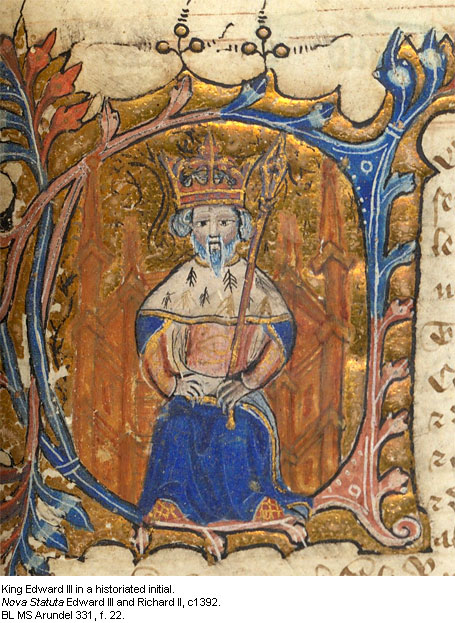 King Edward III in a historiated initial.
Nova Statuta Edward III and Richard II, c1392.
BL MS Arundel 331, f. 22.